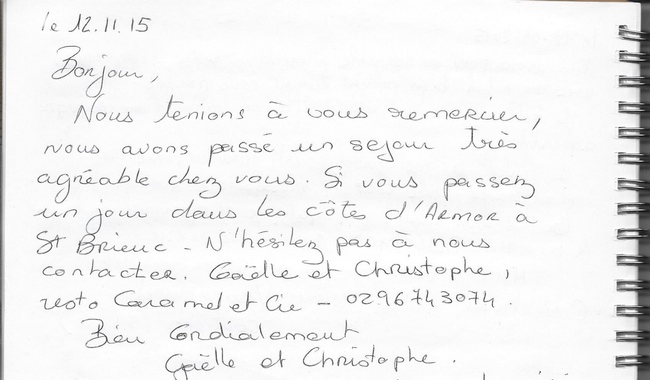 le 12.11.15
Bonjour,
Nous tenions à vous remercier,
nous avons passé un sejour très
agréable chez vous. Si vous passez
un jour dans les côtes d'ARMOR à
St Brieuc - N'hésitez pas à nous
contacter. Gaëlle et Christophe,
resto Caramel et Cie - 0296743074.
Bien Cordialement
Gaëlle et Christophe.